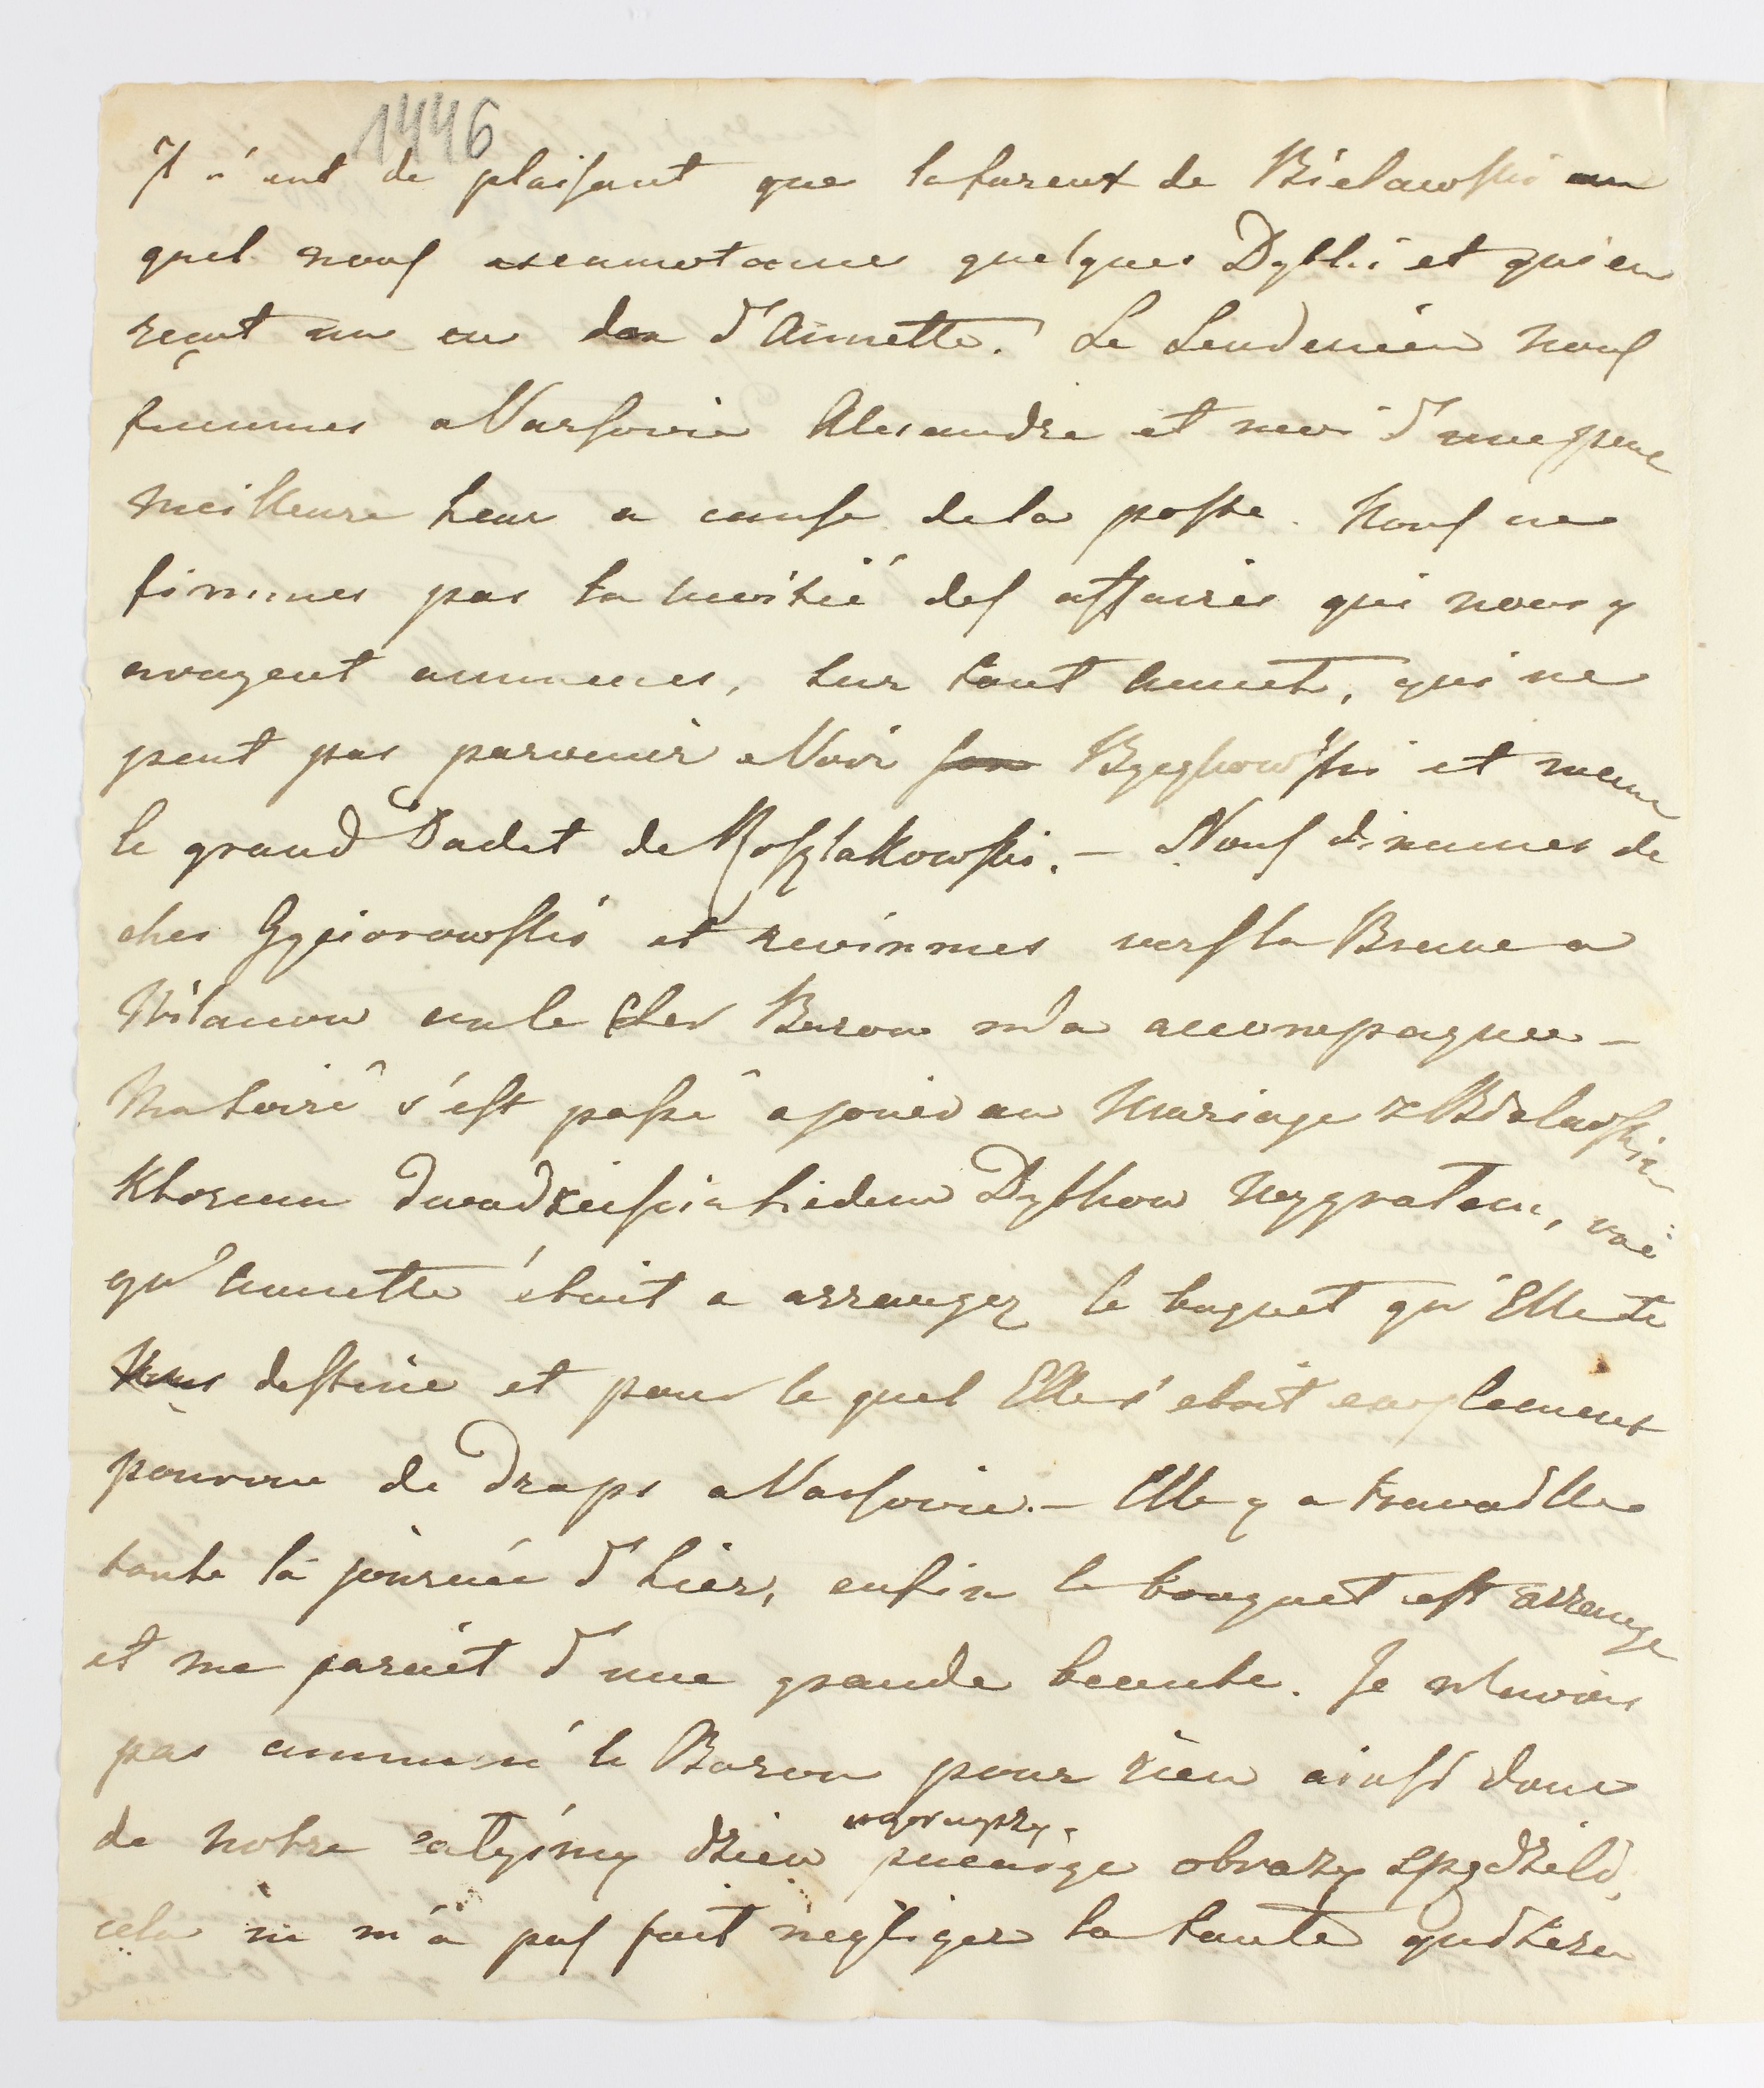 1446
Il n'eut de plaisant que la fureur de Bielawski au
quel nous escamotames quelques Dybki et qui en
reçut un en don d'Annette. Le Lendemain nous
fumes a Varsovie Alexandre et moi d'une
meilleure heur a cause de la poste. Nous ne
finimes pas la moitié des affaires qui nous y
avayent ammenes, sur tout Annet, qui ne
peut pas parvenir a Voir et meme
le grand Dadet de Kosztakowski. — Nous dinames
ches et revinmes vers la Brune a
Wilanow ou le cher Baron m'a accompagnee —
la soiré s'est passé a jouer au Mariage z Bielawskim
Ktoremu dwadziescia siedem Dybkow Wygratem,
qu'Annette étoit a arranger le buquet qu'Elle te
destine et pour le quel Elle s'etoit
pourvue de Draps a Varsovie. — Elle y a travaille
toute la journée d'hier, enfin le bouquet est arrange
et me paroit d'une grande beaute. Je n'avois
pas ammené le Baron pour rien ainsi donc
de notre dzien
wczorayszy
obrazy spędzili,
cela ne m'a pas fait negliger la tante